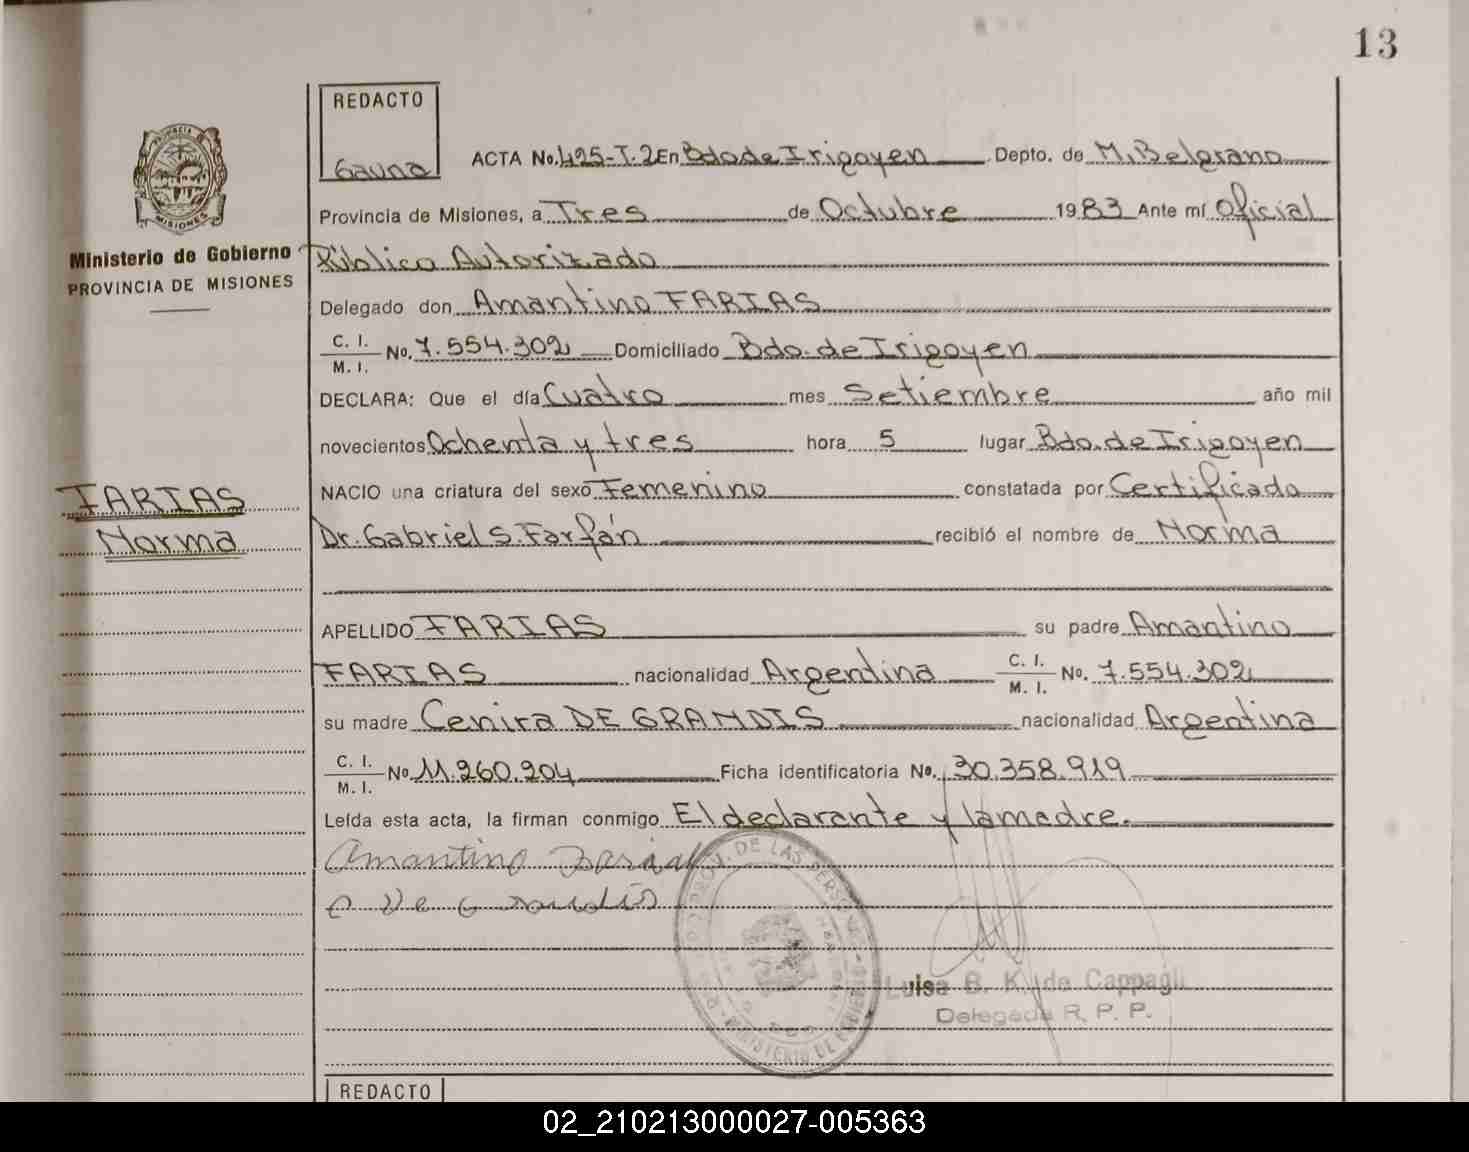 13
REDACTO
Gauna
ACTA No. 425-T.2 En Bdo de Irigoyen Depto. de M. Belgrano
Provincia de Misiones, a Tres de Octubre 1983 Ante mí Oficial
Ministerio de Gobierno
PROVINCIA DE MISIONES
Público Autorizado
Delegado don Amantino FARIAS
C. I.
M. I. No. 7.554.302 Domiciliado Bdo. de Irigoyen
DECLARA: Que el día Cuatro mes Setiembre año mil
novecientos Ochenta y tres hora 5 lugar Bdo. de Irigoyen
NACIO una criatura del sexo Femenino constatada por Certificado
FARIAS
Norma
Dr. Gabriel S. Farfán recibió el nombre de Norma
APELLIDO FARIAS su padre Amantino
FARIAS nacionalidad Argentina C. I. M. I. No. 7.554.302
su madre Cenira DE GRANDIS nacionalidad Argentina
C. I.
M. I. No 11.260.204 Ficha identificatoria No. 30.358.919
Leída esta acta, la firman conmigo El declarante y la madre.
Amantino Farias
C De Grandis
PROV. DE LAS PERSONAS
MINISTERIO DE GOBIERNO
Luisa B. K. de Cappagli
Delegada R. P. P.
REDACTO
02_210213000027-005363